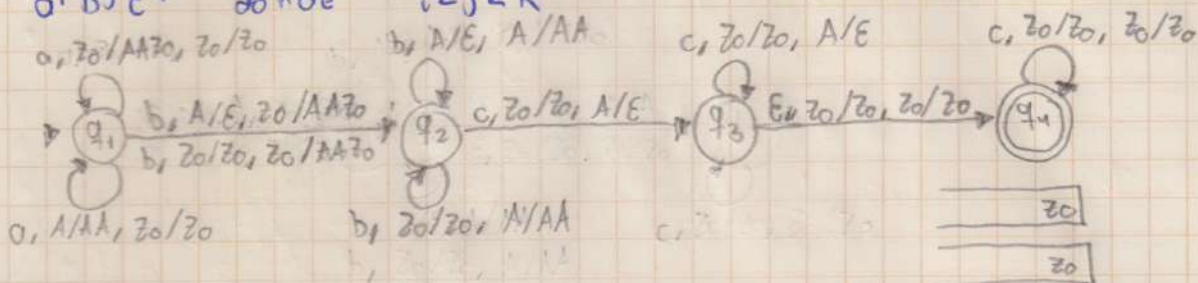 donde
a, Z0/AAZ0, Z0/Z0
b, A/ε, A/AA
c, Z0/Z0, A/ε
c, Z0/Z0, Z0/Z0
q1
b, A/ε, Z0/AAZ0
b, Z0/Z0, Z0/AAZ0
q2
c, Z0/Z0, A/ε
q3
ε, Z0/Z0, Z0/Z0
q4
a, A/AA, Z0/Z0
b, Z0/Z0, A/AA
c,
Z0
Z0